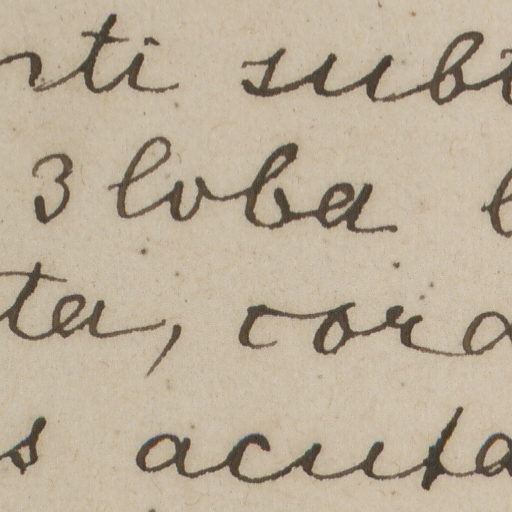 rti subt
3loba l
ta, cora
s acuta